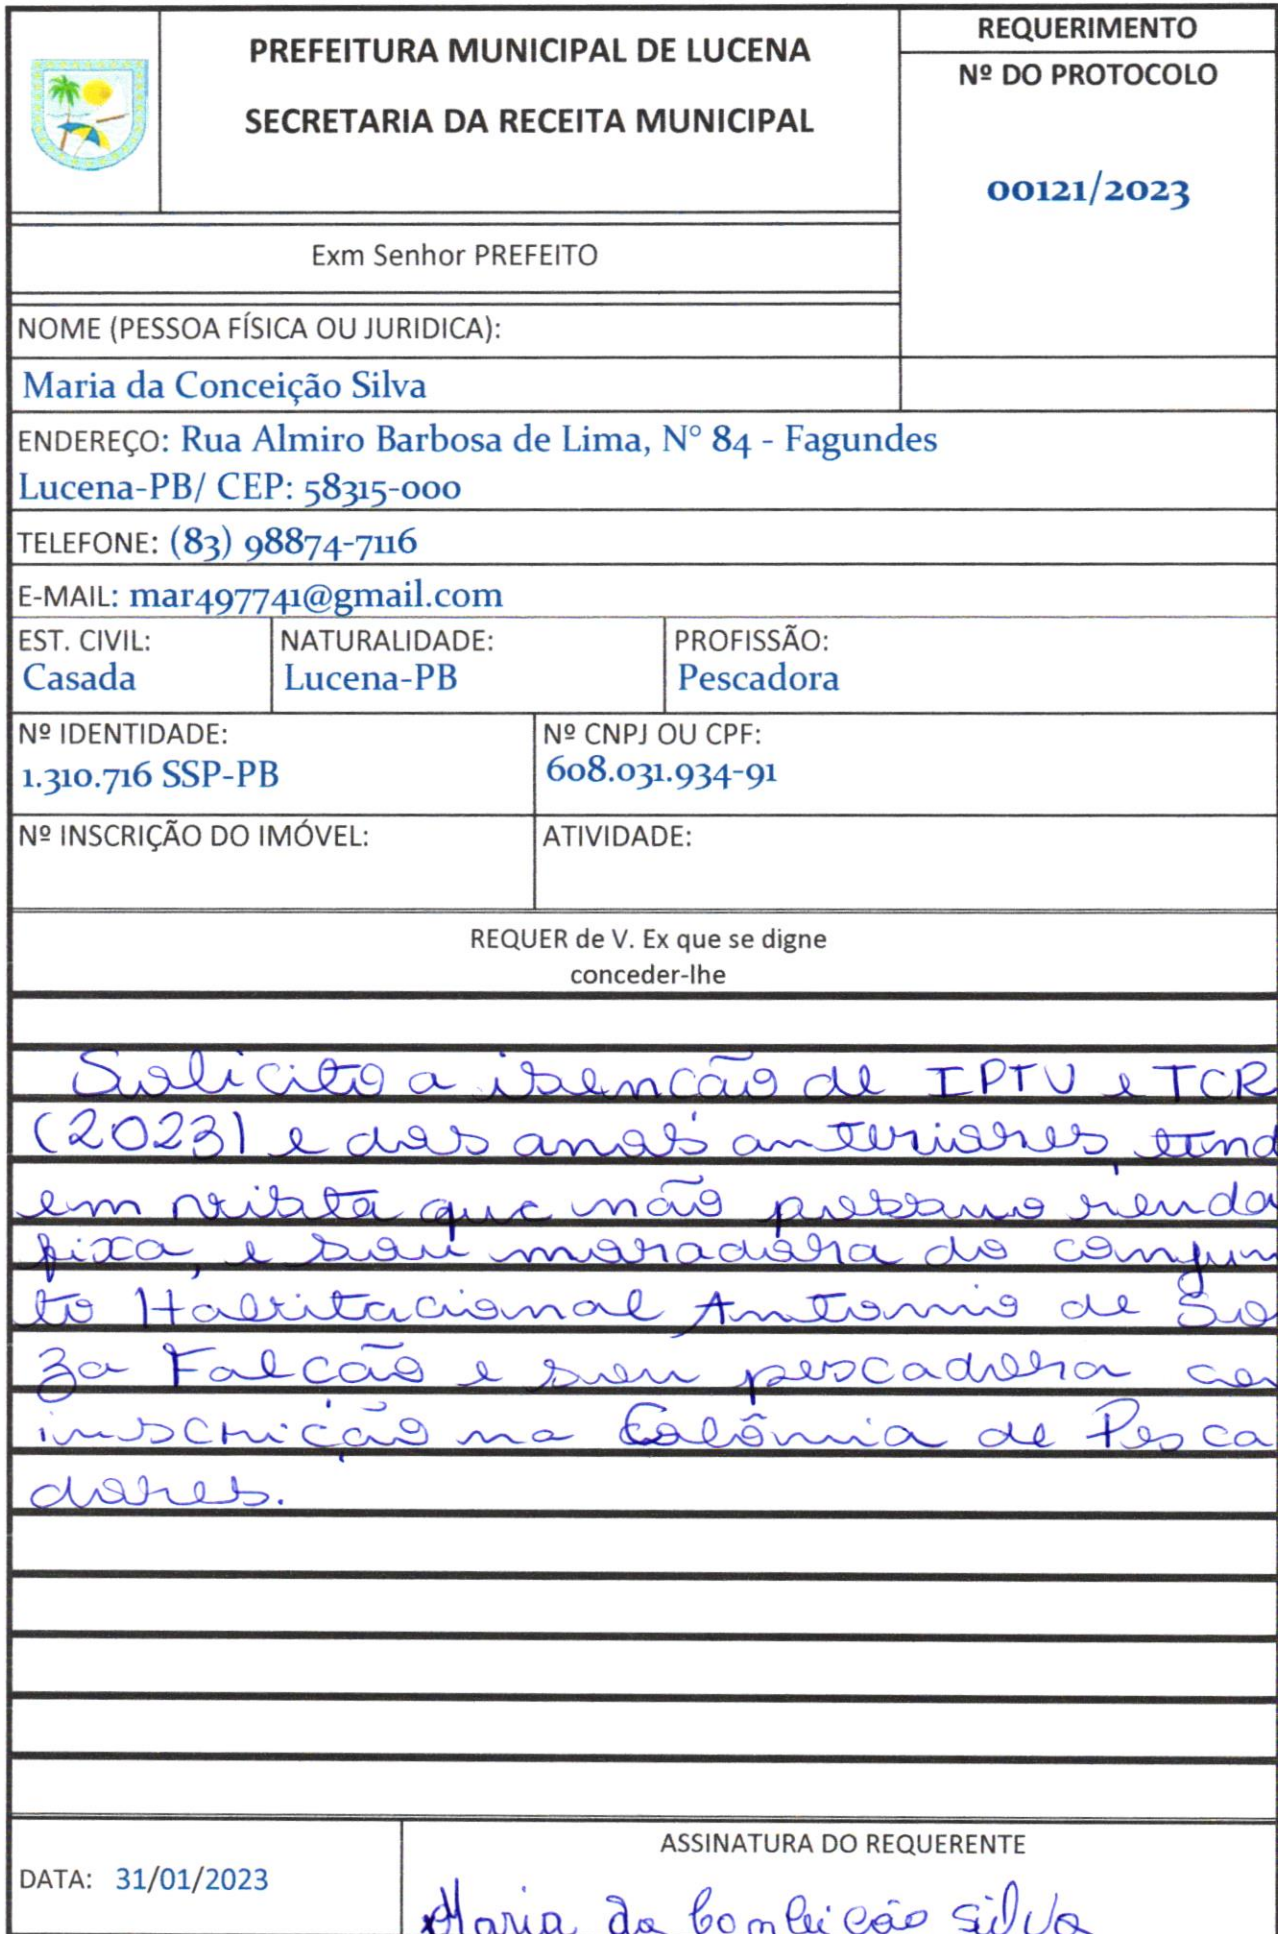 PREFEITURA MUNICIPAL DE LUCENA
SECRETARIA DA RECEITA MUNICIPAL
REQUERIMENTO
Nº DO PROTOCOLO
00121/2023
Exm Senhor PREFEITO
NOME (PESSOA FÍSICA OU JURIDICA):
Maria da Conceição Silva
ENDEREÇO: Rua Almiro Barbosa de Lima, N° 84 - Fagundes
Lucena-PB/ CEP: 58315-000
TELEFONE: (83) 98874-7116
E-MAIL: mar497741@gmail.com
EST. CIVIL:
Casada
NATURALIDADE:
Lucena-PB
PROFISSÃO:
Pescadora
Nº IDENTIDADE:
1.310.716 SSP-PB
Nº CNPJ OU CPF:
608.031.934-91
Nº INSCRIÇÃO DO IMÓVEL:
ATIVIDADE:
REQUER de V. Ex que se digne
conceder-lhe
Solicito a isencão de IPTU e TCR
(2023) e dos anos anteriores, tend
em vista que não possuo renda
fixa, e sou moradora do conjun
to Habitacional Antonio de So
za Falcão e sou pescadora co
inscrição na Colônia de Pesca
dores.
DATA: 31/01/2023
ASSINATURA DO REQUERENTE
Maria da Conceicão Silva